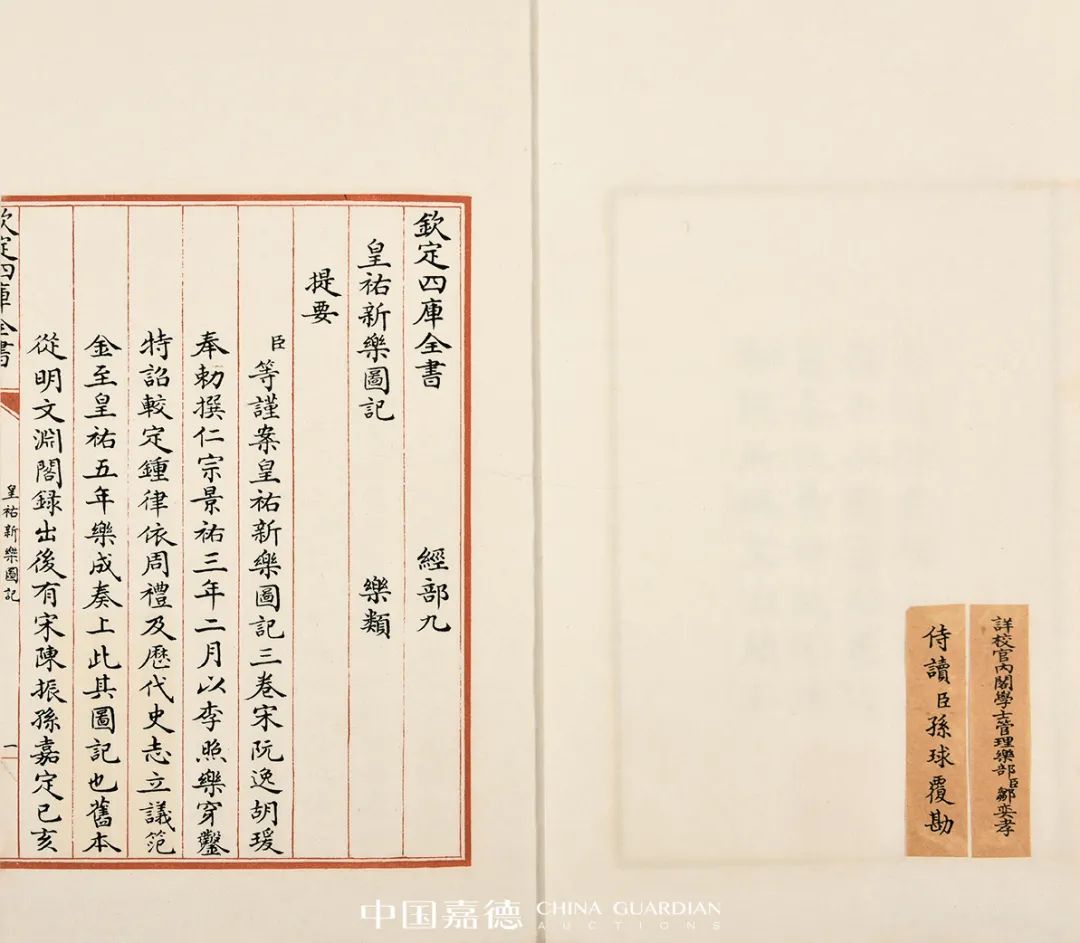 詳校官內閣學士管理樂部臣鄒奕孝
侍讀臣孫球覆勘
欽定四庫全書 經部九
皇祐新樂圖記 樂類
提要
臣等謹案皇祐新樂圖記三卷宋阮逸胡瑗
奉勅撰仁宗景祐三年二月以李照樂穿鑿
特詔較定鍾律依周禮及歷代史志立議范
金至皇祐五年樂成奏上此其圖記也舊本
從明文淵閣録出後有宋陳振孫嘉定已亥
欽定四庫全書
皇祐新樂圖記
一
中国嘉德 CHINA GUARDIAN
AUCTIONS